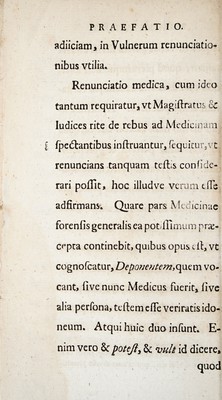 PRAEFATIO.
adiiciam, in Vulnerum renunciatio-
nibus vtilia.
Renunciatio medica, cum ideo
tantum requiratur, vt Magistratus &
Iudices rite de rebus ad Medicinam
spectantibus instruantur, sequitur, vt
renuncians tanquam testis conside-
rari possit, hoc illudve verum esse
adfirmans. Quare pars Medicinae
forensis generalis ea potissimum præ-
cepta continebit, quibus opus est, vt
cognoscatur, Deponentem, quem vo-
cant, sive nunc Medicus fuerit, sive
alia persona, testem esse veritatis ido-
neum. Atqui huic duo insunt. E-
nim vero & potest, & vult id dicere,
quod